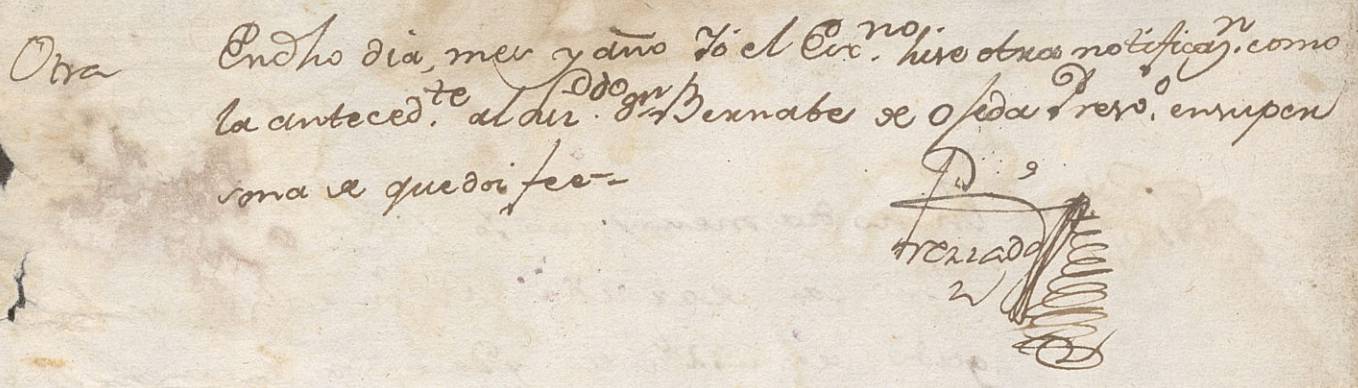 Otra
En dho dia, mes y año Yo el Escno. hise otra notificazn. como
la antecedte. al Lizdo dn Bernabe de Oseda Preso. en su per
sona de que doi fee=